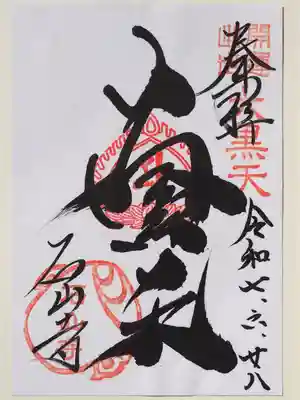 奉拝
開運
大黒天
令和七、六、廿八
大黒天
石山寺